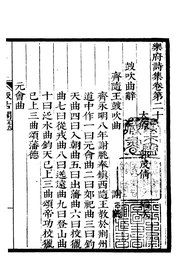 樂府詩集卷第二十
太原 郭茂倩 編次
鼓吹曲辭
齊隨王鼓吹曲
齊永明八年謝朓奉鎮西隨王教於荆州
道中作一曰元會曲二曰郊祀曲三曰鈞
天曲四曰入朝曲五曰出藩曲六曰校獵
曲七曰從戎曲八曰送遠曲九曰登山曲
十曰泛水曲鈞天已上三曲頌帝功校獵
已上三曲頌藩德
元會曲